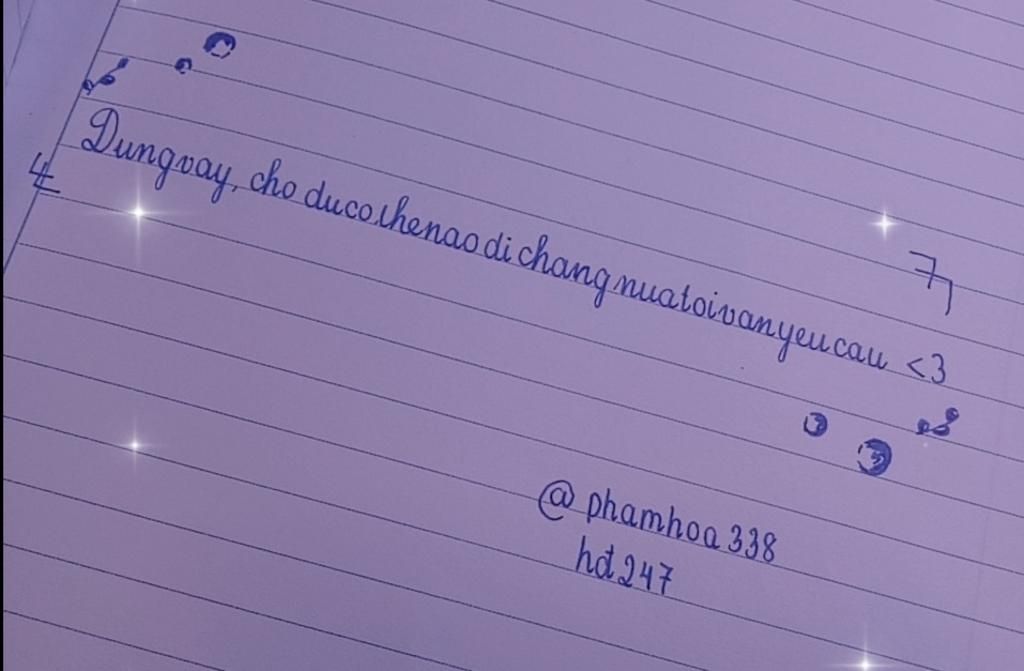 Dungvay, cho ducothenaodi chang nuatoivanyeu cau <3
@ phamhoa 338
hđ 247